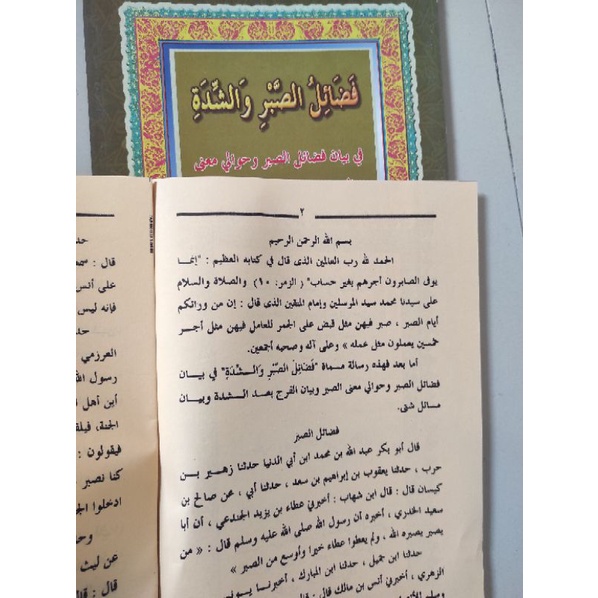 فَضَائِلُ الصَّبْرِ وَالشِّدَةِ
في بيان فضائل الصبر وحوالي معنى
٢
بسم الله الرحمن الرحيم
الحمد لله رب العالمين الذى قال في كتابه العظيم : "إنما
يوفى الصابرون أجرهم بغير حساب" ( الزمر: ١٠) والصلاة والسلام
على سيدنا محمد سيد المرسلين وإمام المتقين الذى قال : إن من ورائكم
أيام الصبر ، صبر فيهن مثل قبض على الجمر للعامل فيهن مثل أجر
خمسين يعملون مثل عمله » وعلى آله وصحبه أجمعين.
أما بعد فهذه رسالة مسماة "فَضَائِلُ الصَّبْرِ وَالشِّدَةِ" في بيان
فضائل الصبر وحوالي معنى الصبر وبيان الفرج بعد الشدة وبيان
مسائل شتى.
فضائل الصبر
قال أبو بكر عبد الله بن محمد ابن أبي الدنيا حدثنا زهير بن
حرب ، حدثنا يعقوب بن إبراهيم بن سعد ، حدثنا أبي ، عن صالح بن
كيسان قال : قال ابن شهاب : أخبرني عطاء بن يزيد الجندعي ، أن أبا
سعيد الخدري ، أخبره أن رسول الله صلى الله عليه وسلم قال : « من
يصبر يصبره الله ، ولم يعطوا عطاء خيرا وأوسع من الصبر »
حدثنا ابن جميل ، حدثنا ابن المبارك ، أخبرنا يونس
الزهري ، أخبرني أنس بن مالك قال :
حد
قال :
على أنس
فإنه ليس
حد
العرزمي
رسول الله
أين أهل
الجنة، فيلقـ
فيقولون :
كنا نصبر
ادخلوا الجـ
وحـ
عن ليث
قال : قال